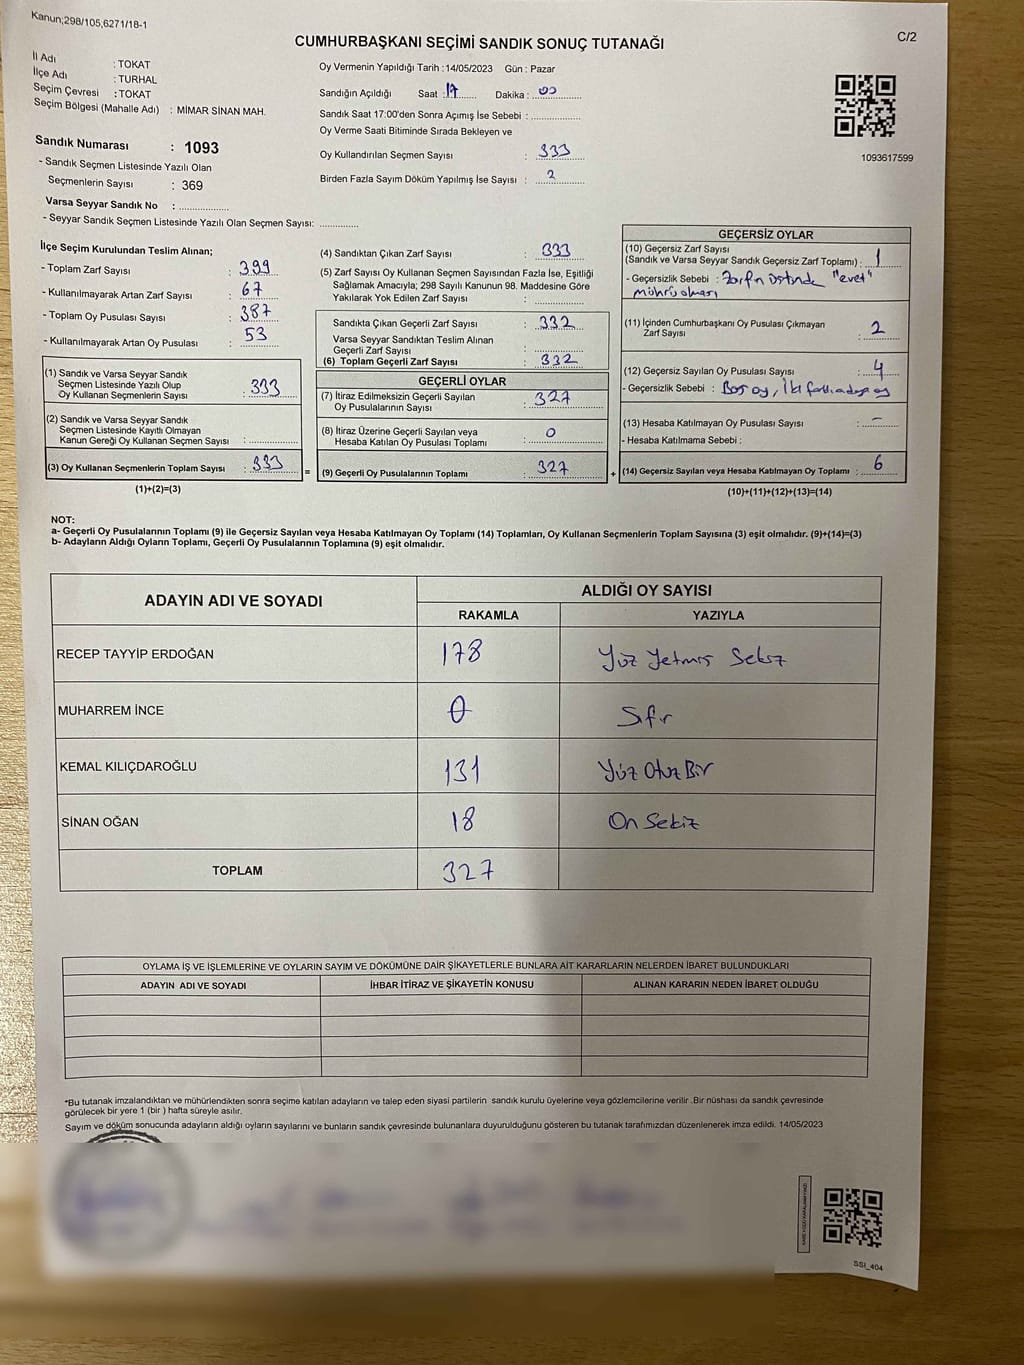 Kanun;298/105,6271/18-1
C/2
CUMHURBAŞKANI SEÇİMİ SANDIK SONUÇ TUTANAĞI
İl Adı : TOKAT
İlçe Adı : TURHAL
Seçim Çevresi : TOKAT
Seçim Bölgesi (Mahalle Adı) : MİMAR SİNAN MAH.
Sandık Numarası : 1093
- Sandık Seçmen Listesinde Yazılı Olan
Seçmenlerin Sayısı : 369
Varsa Seyyar Sandık No : ....................
- Seyyar Sandık Seçmen Listesinde Yazılı Olan Seçmen Sayısı: ...............
Oy Vermenin Yapıldığı Tarih : 14/05/2023 Gün : Pazar
Sandığın Açıldığı Saat : 17 Dakika : 00
Sandık Saat 17:00'den Sonra Açımış İse Sebebi : ....................
Oy Verme Saati Bitiminde Sırada Bekleyen ve
Oy Kullandırılan Seçmen Sayısı : 333
Birden Fazla Sayım Döküm Yapılmış İse Sayısı : 2
1093617599
İlçe Seçim Kurulundan Teslim Alınan;
- Toplam Zarf Sayısı : 399
- Kullanılmayarak Artan Zarf Sayısı : 67
- Toplam Oy Pusulası Sayısı : 387
- Kullanılmayarak Artan Oy Pusulası : 53
(1) Sandık ve Varsa Seyyar Sandık
Seçmen Listesinde Yazılı Olup
Oy Kullanan Seçmenlerin Sayısı : 333
(2) Sandık ve Varsa Seyyar Sandık
Seçmen Listesinde Kayıtlı Olmayan
Kanun Gereği Oy Kullanan Seçmen Sayısı : ...............
(3) Oy Kullanan Seçmenlerin Toplam Sayısı : 333
(1)+(2)=(3)
(4) Sandıktan Çıkan Zarf Sayısı : 333
(5) Zarf Sayısı Oy Kullanan Seçmen Sayısından Fazla İse, Eşitliği
Sağlamak Amacıyla; 298 Sayılı Kanunun 98. Maddesine Göre
Yakılarak Yok Edilen Zarf Sayısı : ...............
Sandıkta Çıkan Geçerli Zarf Sayısı : 332
Varsa Seyyar Sandıktan Teslim Alınan
Geçerli Zarf Sayısı : ...............
(6) Toplam Geçerli Zarf Sayısı : 332
GEÇERLİ OYLAR
(7) İtiraz Edilmeksizin Geçerli Sayılan
Oy Pusulalarının Sayısı : 327
(8) İtiraz Üzerine Geçerli Sayılan veya
Hesaba Katılan Oy Pusulası Toplamı : 0
= (9) Geçerli Oy Pusulalarının Toplamı : 327
GEÇERSİZ OYLAR
(10) Geçersiz Zarf Sayısı
(Sandık ve Varsa Seyyar Sandık Geçersiz Zarf Toplamı) : 1
- Geçersizlik Sebebi : Zarfın üstünde "evet"
mührü olması
(11) İçinden Cumhurbaşkanı Oy Pusulası Çıkmayan
Zarf Sayısı : 2
(12) Geçersiz Sayılan Oy Pusulası Sayısı : 4
- Geçersizlik Sebebi : Boş oy, İki farklı adaya oy
(13) Hesaba Katılmayan Oy Pusulası Sayısı : -
- Hesaba Katılmama Sebebi :
+ (14) Geçersiz Sayılan veya Hesaba Katılmayan Oy Toplamı : 6
(10)+(11)+(12)+(13)=(14)
NOT:
a- Geçerli Oy Pusulalarının Toplamı (9) ile Geçersiz Sayılan veya Hesaba Katılmayan Oy Toplamı (14) Toplamları, Oy Kullanan Seçmenlerin Toplam Sayısına (3) eşit olmalıdır. (9)+(14)=(3)
b- Adayların Aldığı Oyların Toplamı, Geçerli Oy Pusulalarının Toplamına (9) eşit olmalıdır.
ADAYIN ADI VE SOYADI ALDIĞI OY SAYISI
RAKAMLA YAZIYLA
RECEP TAYYİP ERDOĞAN 178 Yüz Yetmiş Sekiz
MUHARREM İNCE 0 Sıfır
KEMAL KILIÇDAROĞLU 131 Yüz Otuz Bir
SİNAN OĞAN 18 On Sekiz
TOPLAM 327
OYLAMA İŞ VE İŞLEMLERİNE VE OYLARIN SAYIM VE DÖKÜMÜNE DAİR ŞİKAYETLERLE BUNLARA AİT KARARLARIN NELERDEN İBARET BULUNDUKLARI
ADAYIN ADI VE SOYADI İHBAR İTİRAZ VE ŞİKAYETİN KONUSU ALINAN KARARIN NEDEN İBARET OLDUĞU
*Bu tutanak imzalandıktan ve mühürlendikten sonra seçime katılan adayların ve talep eden siyasi partilerin sandık kurulu üyelerine veya gözlemcilerine verilir .Bir nüshası da sandık çevresinde
görülecek bir yere 1 (bir ) hafta süreyle asılır.
Sayım ve döküm sonucunda adayların aldığı oyların sayılarını ve bunların sandık çevresinde bulunanlara duyurulduğunu gösteren bu tutanak tarafımızdan düzenlenerek imza edildi. 14/05/2023
SSI_404